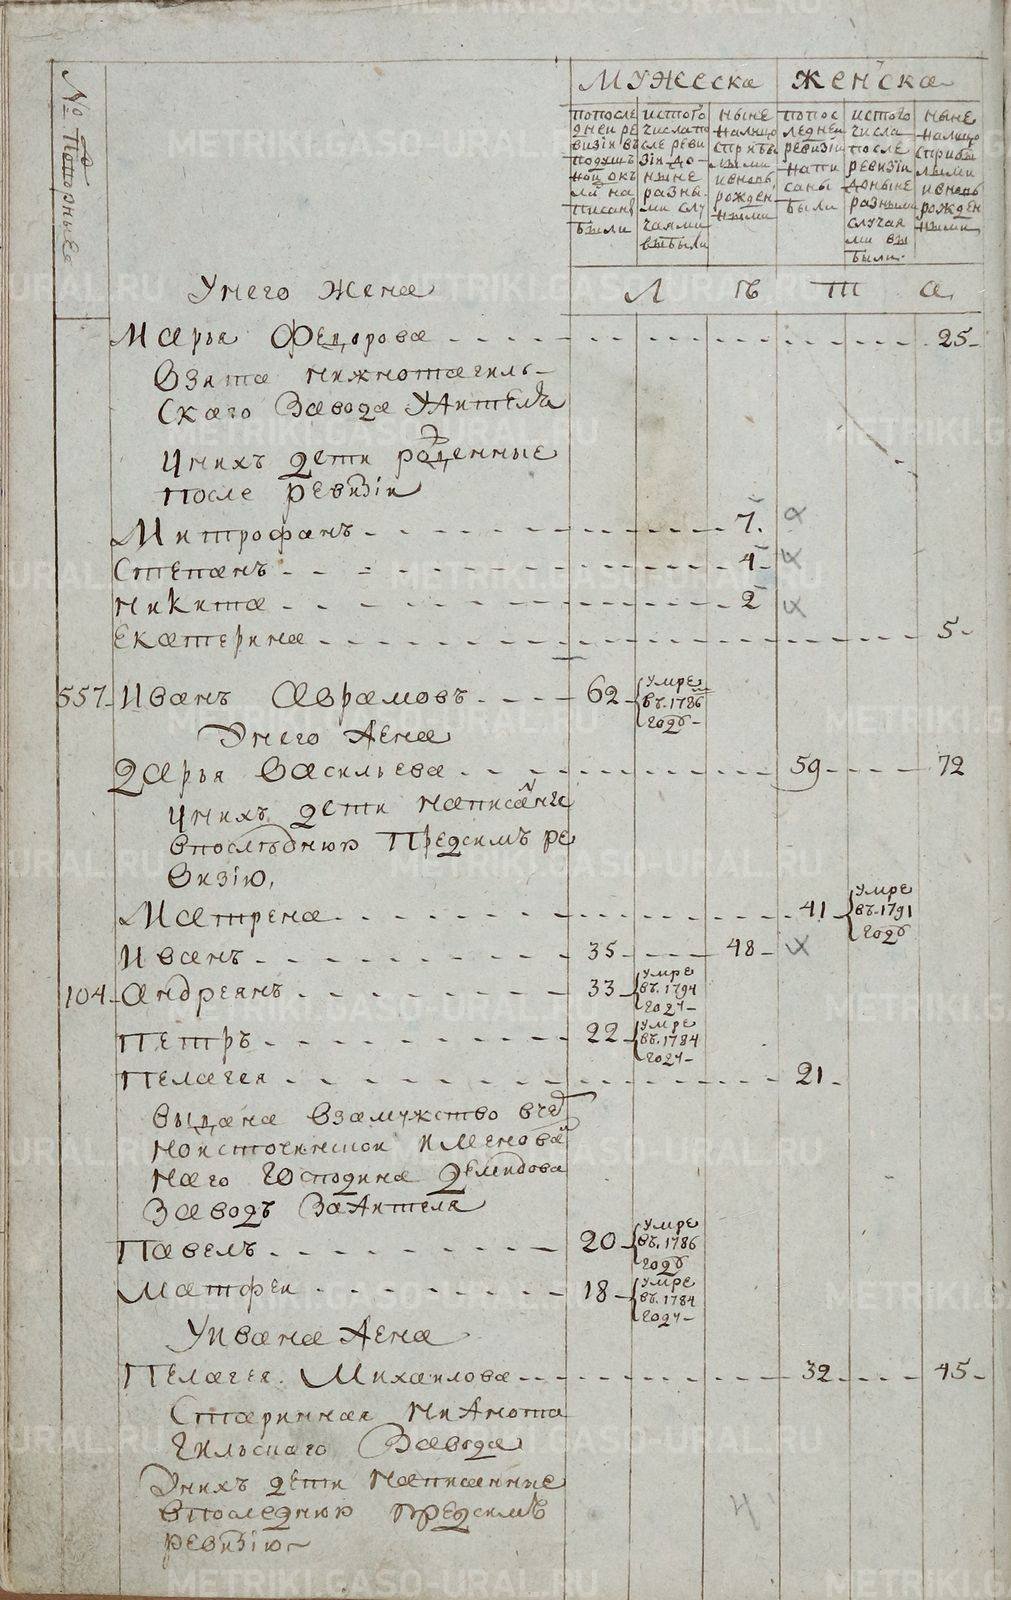 № Подворные
Мужеска
Женска
попосле
дней ре
визіи въ
подушъ
ной окъ
ладъ на
писаны
были
истого
числа по
сле реви
зіи до
ныне
разны
ми слу
чаями
выбыли
ныне
налицо
сприбы
лыми
ивновь
рожден
ными
попос
ледней
ревизіи
напи
саны
были
истого
числа
после
ревизіи
доныне
разными
случая
ми вы
были
ныне
налицо
сприбы
лыми
ивновь
рожден
ными
Унего жена
Л ѣ т а
Марья Федорова 25
Взята нижнотагиль-
скаго завода
Унихъ дети рожденные
после ревизіи
Митрофанъ 7.
Степанъ 4
Никита 2
Екатерина 5
557 Иванъ Аврамовъ 62 умре
въ 1786
годѣ
Унего жена
Дарья Васильева 59 72
Унихъ дети написанные
впоследнюю предсимъ ре
визію,
Матрена 41 умре
въ 1791
годѣ
Иванъ 35 48
104 Андреянъ 33 умре
въ 1794
году
Петръ 22 умре
въ 1784
году
Пелагея 21
выдана взамужство вчер
ноисточинской именова
наго господина Демидова
заводъ зажителя
Павелъ 20 умре
въ 1786
годѣ
Матфеи 18 умре
въ 1784
году
Уивана жена
Пелагея Михаилова 32 45
Старинная нижнота
гильскаго завода
Унихъ дети написанные
впоследнюю предсимъ
ревизію
METRIKI.GASO-URAL.RU